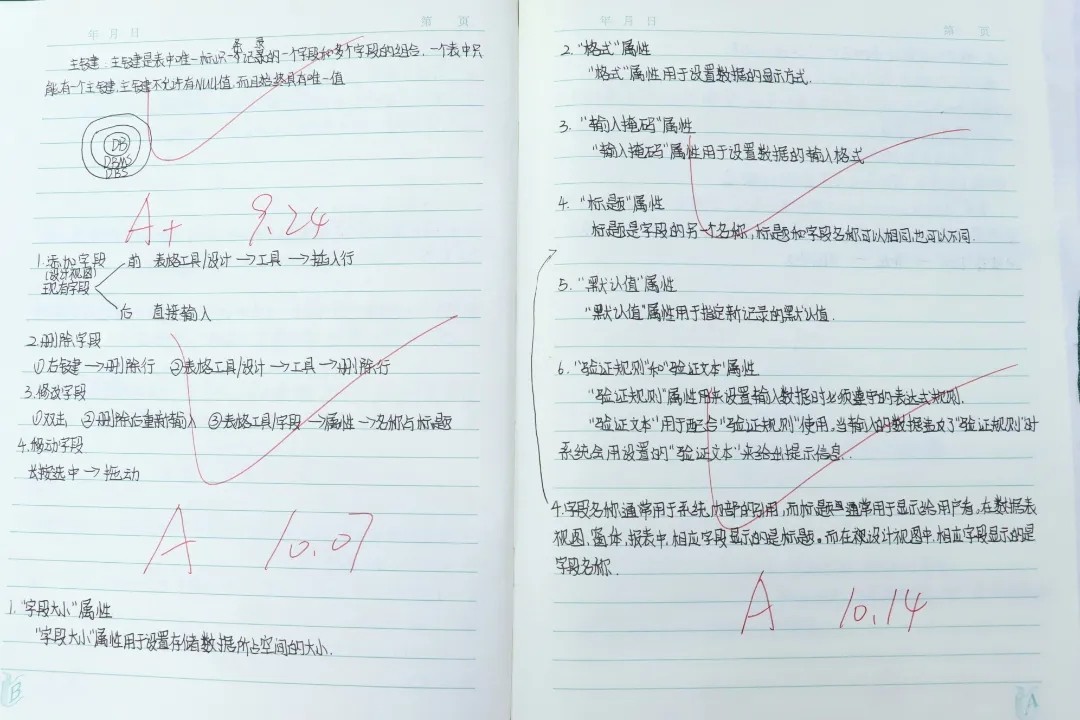 年 月 日
第 页
主键:主键是表中唯一标识一条记录的一个字段和多个字段的组合.一个表中只
能有一个主键,主键不允许有NULL值,而且始终具有唯一值
DB
DBMS
DBS
A+ 9.24
1.添加字段
(设计视图)
现有字段
前 表格工具/设计→工具→插入行
后 直接输入
2.删除字段
①右键→删除行 ②表格工具/设计→工具→删除行
3.修改字段
①双击 ②删除后重新输入 ③表格工具/字段→属性→名称与标题
4.移动字段
长按选中→拖动
A 10.07
1."字段大小"属性
"字段大小"属性用于设置存储数据所占空间的大小.
B
年 月 日
第 页
2."格式"属性
"格式"属性用于设置数据的显示方式.
3."输入掩码"属性
"输入掩码"属性用于设置数据的输入格式
4."标题"属性
标题是字段的另一个名称,标题和字段名称可以相同也可以不同.
5."默认值"属性
"默认值"属性用于指定新记录的默认值.
6."验证规则"和"验证文本"属性
"验证规则"属性用来设置输入数据时必须遵守的表达式规则.
"验证文本"用于配合"验证规则"使用.当输入的数据违反了"验证规则"时
系统会用设置的"验证文本"来给出提示信息.
4.字段名称通常用于系统内部的引用,而标题通常用于显示给用户看。在数据表
视图、窗体、报表中,相应字段显示的是标题。而在设计视图中,相应字段显示的是
字段名称.
A 10.14
A